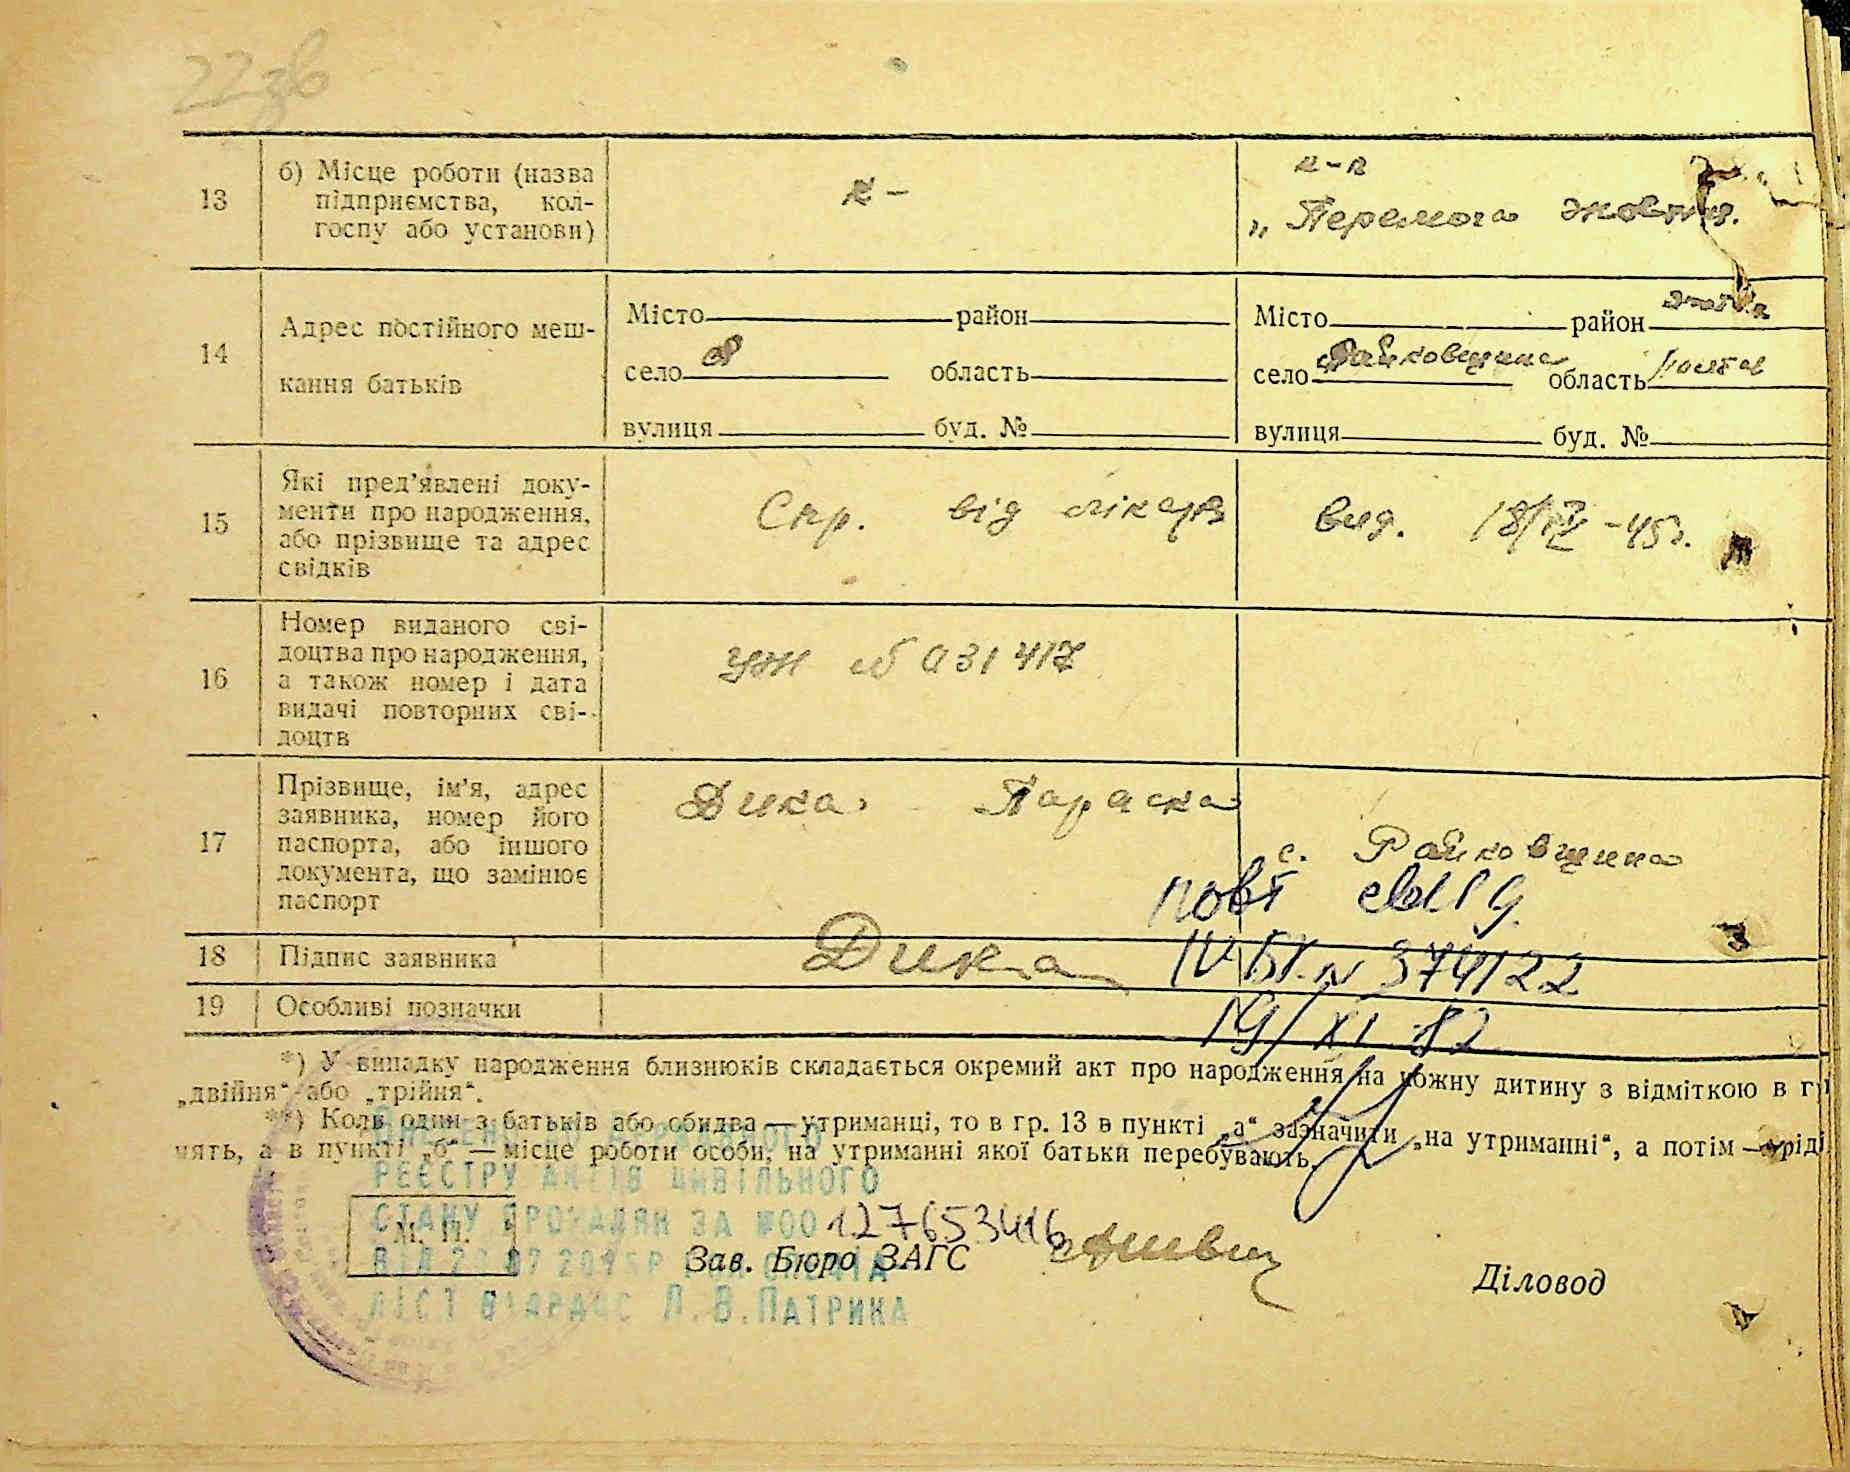 22зв
13
б) Місце роботи (назва
підприємства, кол-
госпу або установи)
к-
к-п
„ Перемога
14
Адрес постійного меш-
кання батьків
Місто район
село область
вулиця буд. №
Місто район
село Райковщина область Полтав
вулиця буд. №
15
Які пред’явлені доку-
менти про народження,
або прізвище та адрес
свідків
Спр. від лікаря вид. 18/IV -45г.
16
Номер виданого сві-
доцтва про народження,
а також номер і дата
видачі повторних сві-
доцтв
УЖ № 031417
17
Прізвище, ім’я, адрес
заявника, номер його
паспорта, або іншого
документа, що замінює
паспорт
Дика Параска
с. Райковщина
повт свід
18
Підпис заявника
Дика
IV-БК N 374122
19
Особливі позначки
19/XI-82
*) У випадку народження близнюків складається окремий акт про народження на кожну дитину з відміткою в гр
„двійня“ або „трійня“.
**) Коли один з батьків або обидва — утриманці, то в гр. 13 в пункті „а“ зазначити „на утриманні“, а потім —
нять, а в пункті „б“ — місце роботи особи, на утриманні якої батьки перебувають.
РЕЄСТРУ АКТІВ ЦИВІЛЬНОГО
СТАНУ ГРОМАДЯН ЗА №00 127653416
М. П.
Зав. Бюро ЗАГС
Діловод
Л.В.ПАТРИКА